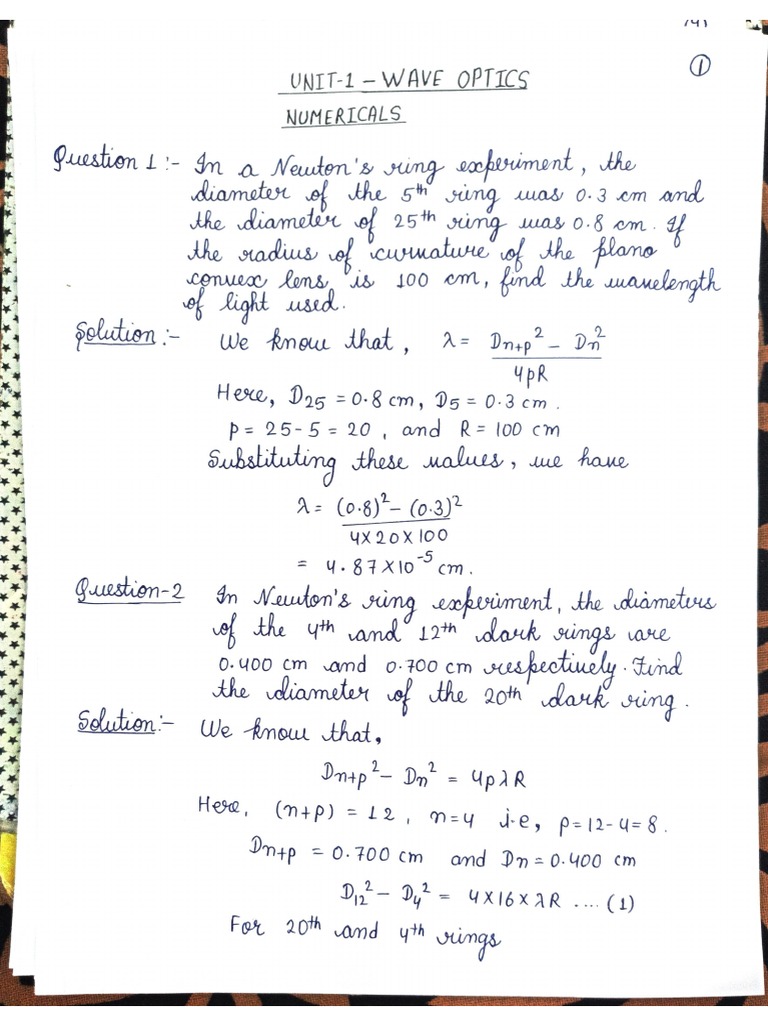 141
①
UNIT-1 – WAVE OPTICS
NUMERICALS
Question 1 :- In a Newton's ring experiment, the
diameter of the 5th ring was 0.3 cm and
the diameter of 25th ring was 0.8 cm. If
the radius of curvature of the plano
convex lens is 100 cm, find the wavelength
of light used.
Solution :- We know that, λ = Dn+p² – Dn²
4pR
Here, D25 = 0.8 cm, D5 = 0.3 cm.
p = 25-5 = 20, and R = 100 cm
Substituting these values, we have
λ = (0.8)² – (0.3)²
4×20×100
= 4.87×10⁻⁵ cm.
Question-2 In Newton's ring experiment, the diameters
of the 4th and 12th dark rings are
0.400 cm and 0.700 cm respectively. Find
the diameter of the 20th dark ring.
Solution:- We know that,
Dn+p² – Dn² = 4pλR
Here, (n+p) = 12, n=4 i.e, p=12-4=8.
Dn+p = 0.700 cm and Dn = 0.400 cm
D12² – D4² = 4×16×λR ....(1)
For 20th and 4th rings